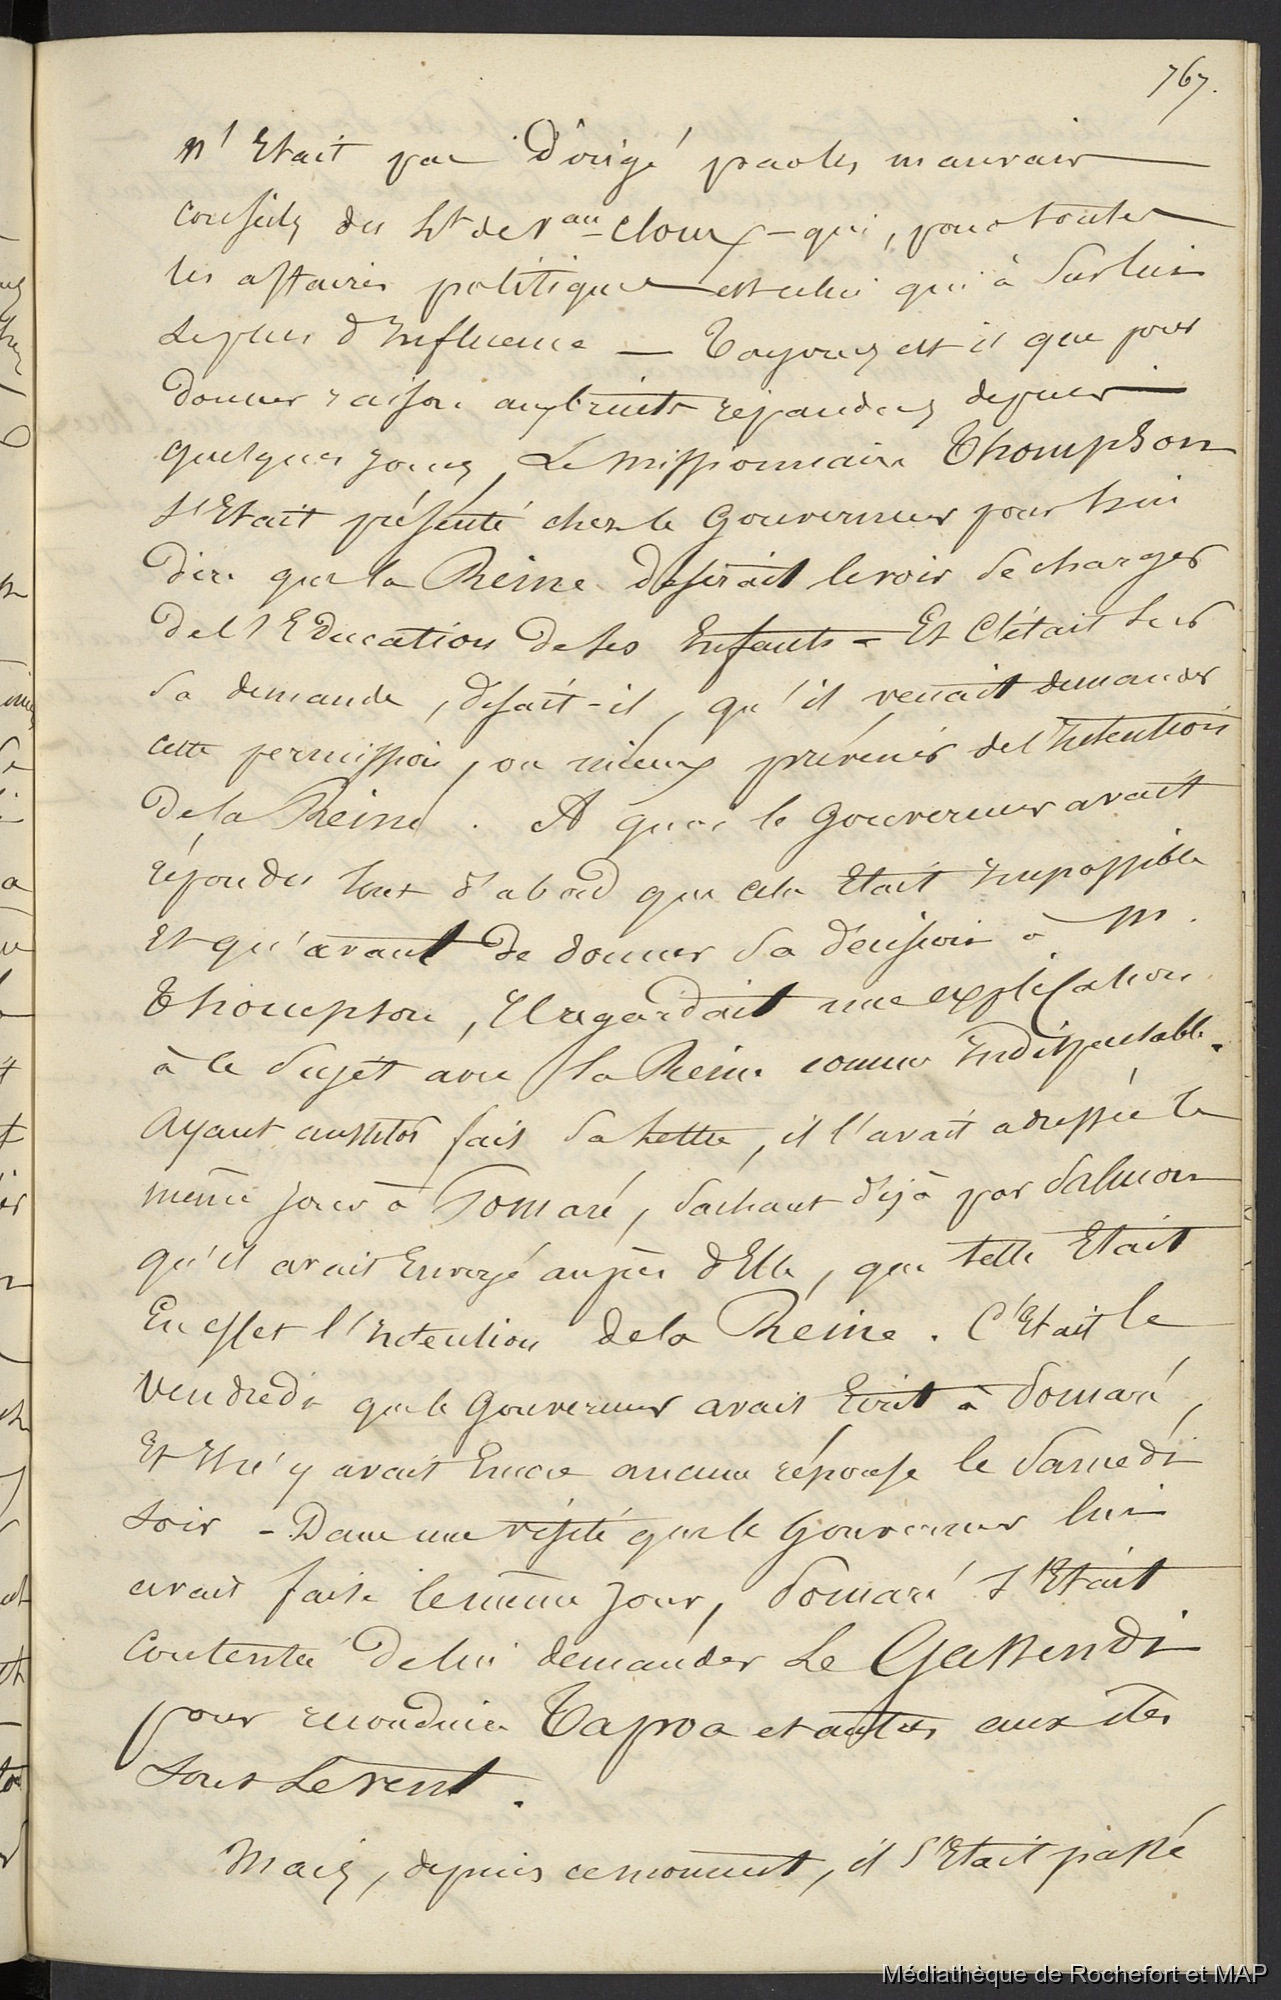 767.
n'Etait pas Dirigé par les mauvais
conseils du Lt de Vau Cloux – qui, pour toutes
les affaires politiques est celui qui à Sur lui
le plus d'Influence — Toujours est il que pour
donner raison aux bruits repandus depuis
quelques jours, Le missionnaire Thompson
s'Etait présenté chez le Gouverneur pour lui
dire que la Reine desirait le voir se charger
De l'Education de ses Enfants – Et C'était sur
sa demande, disait-il, qu'il venait demander
cette permission, ou mieux prévenir de l'Intention
De la Reine. A quoi le Gouverneur avait
répondu tout d'abord que cela Etait Impossible
Et qu'avant De donner sa Décision à M.
Thompson, Il regardait une explication
à ce sujet avec la Reine comme Indispensable.
Ayant aussitot fait sa lettre, il l'avait adressée le
même jour à Pomaré, sachant déjà par Salmon
qu'il avait Envoyé auprès d'Elle, que telle Etait
En effet l'Intention de la Reine. C'Etait le
Vendredi que le Gouverneur avait Ecrit à Pomaré,
Et Il n'y avait Encore aucune réponse le Samedi
soir – Dans une visite que le Gouverneur lui
avait faite le même jour, Pomaré s'Etait
Contentée De lui demander Le Gassendi
pour reconduire Tapoa et autres aux iles
sous Le vent.
Mais, depuis ce moment, il s'Etait passé
Médiathèque de Rochefort et MAP